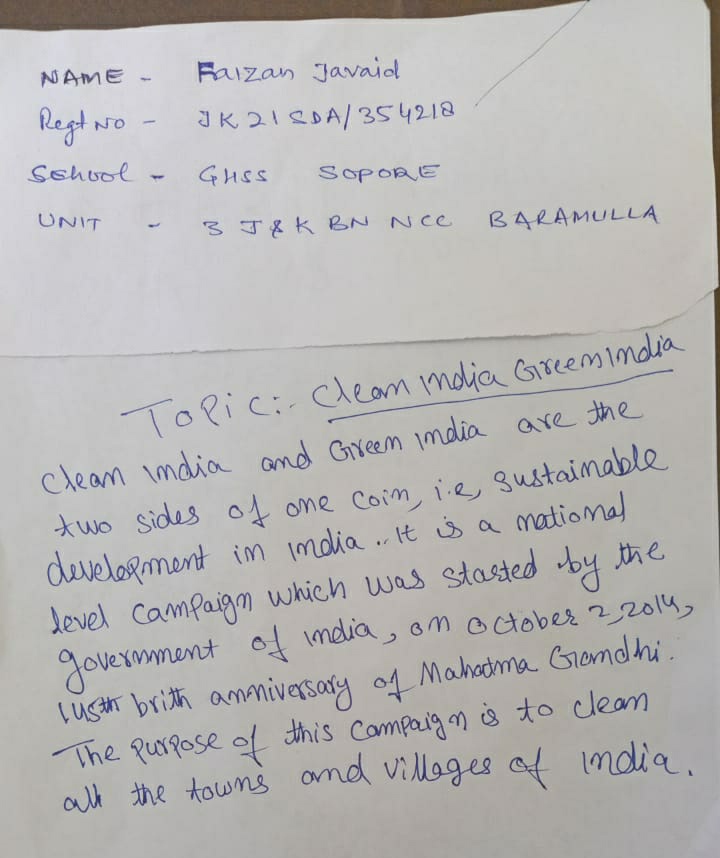 NAME - Faizan Javaid
Regt No - JK21SDA/354218
School - GHSS SOPORE
UNIT - 3 J&K BN NCC BARAMULLA
Topic:- Clean india Green india
Clean india and Green india are the
two sides of one coin, i.e, sustainable
development in india .. It is a national
level campaign which was started by the
government of india, on october 2, 2014,
145th brith anniversary of Mahatma Gandhi.
The purpose of this campaign is to clean
all the towns and villages of india.